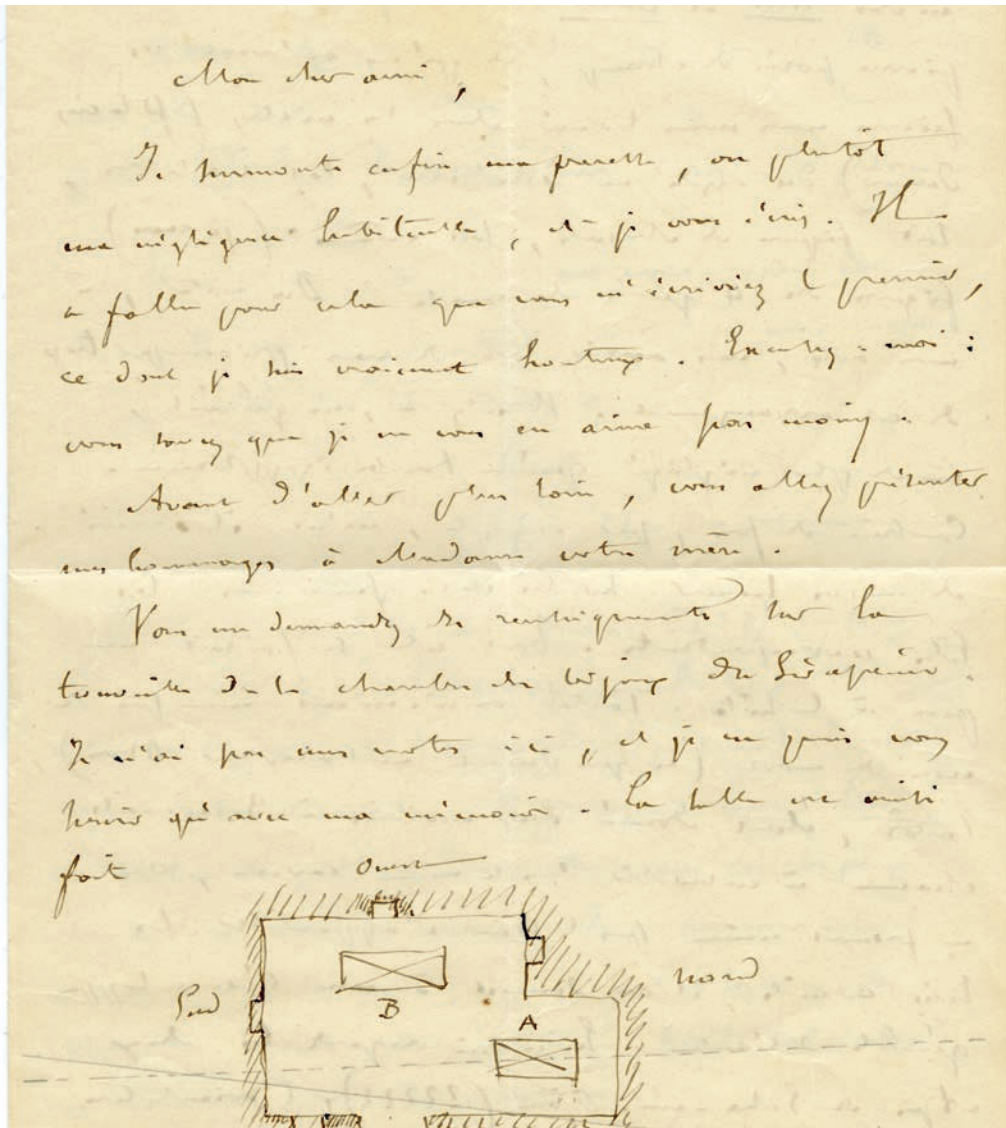 Mon cher ami,
Je surmonte enfin ma paresse, ou plutôt
ma négligence habituelle, et je vous écris. Il
a fallu pour cela que vous m'écriviez le premier,
ce dont je suis vraiment honteux. Excusez-moi :
vous savez que je ne vous en aime pas moins.
Avant d'aller plus loin, vous allez présenter
mes hommages à Madame votre mère.
Vous me demandez des renseignements sur la
trouvaille de la chambre des bijoux du Sérapéum.
Je n'ai pas mes notes ici, et je ne puis vous
servir qu'avec ma mémoire. La salle est ainsi
fait
Ouest
Sud
B
A
nord